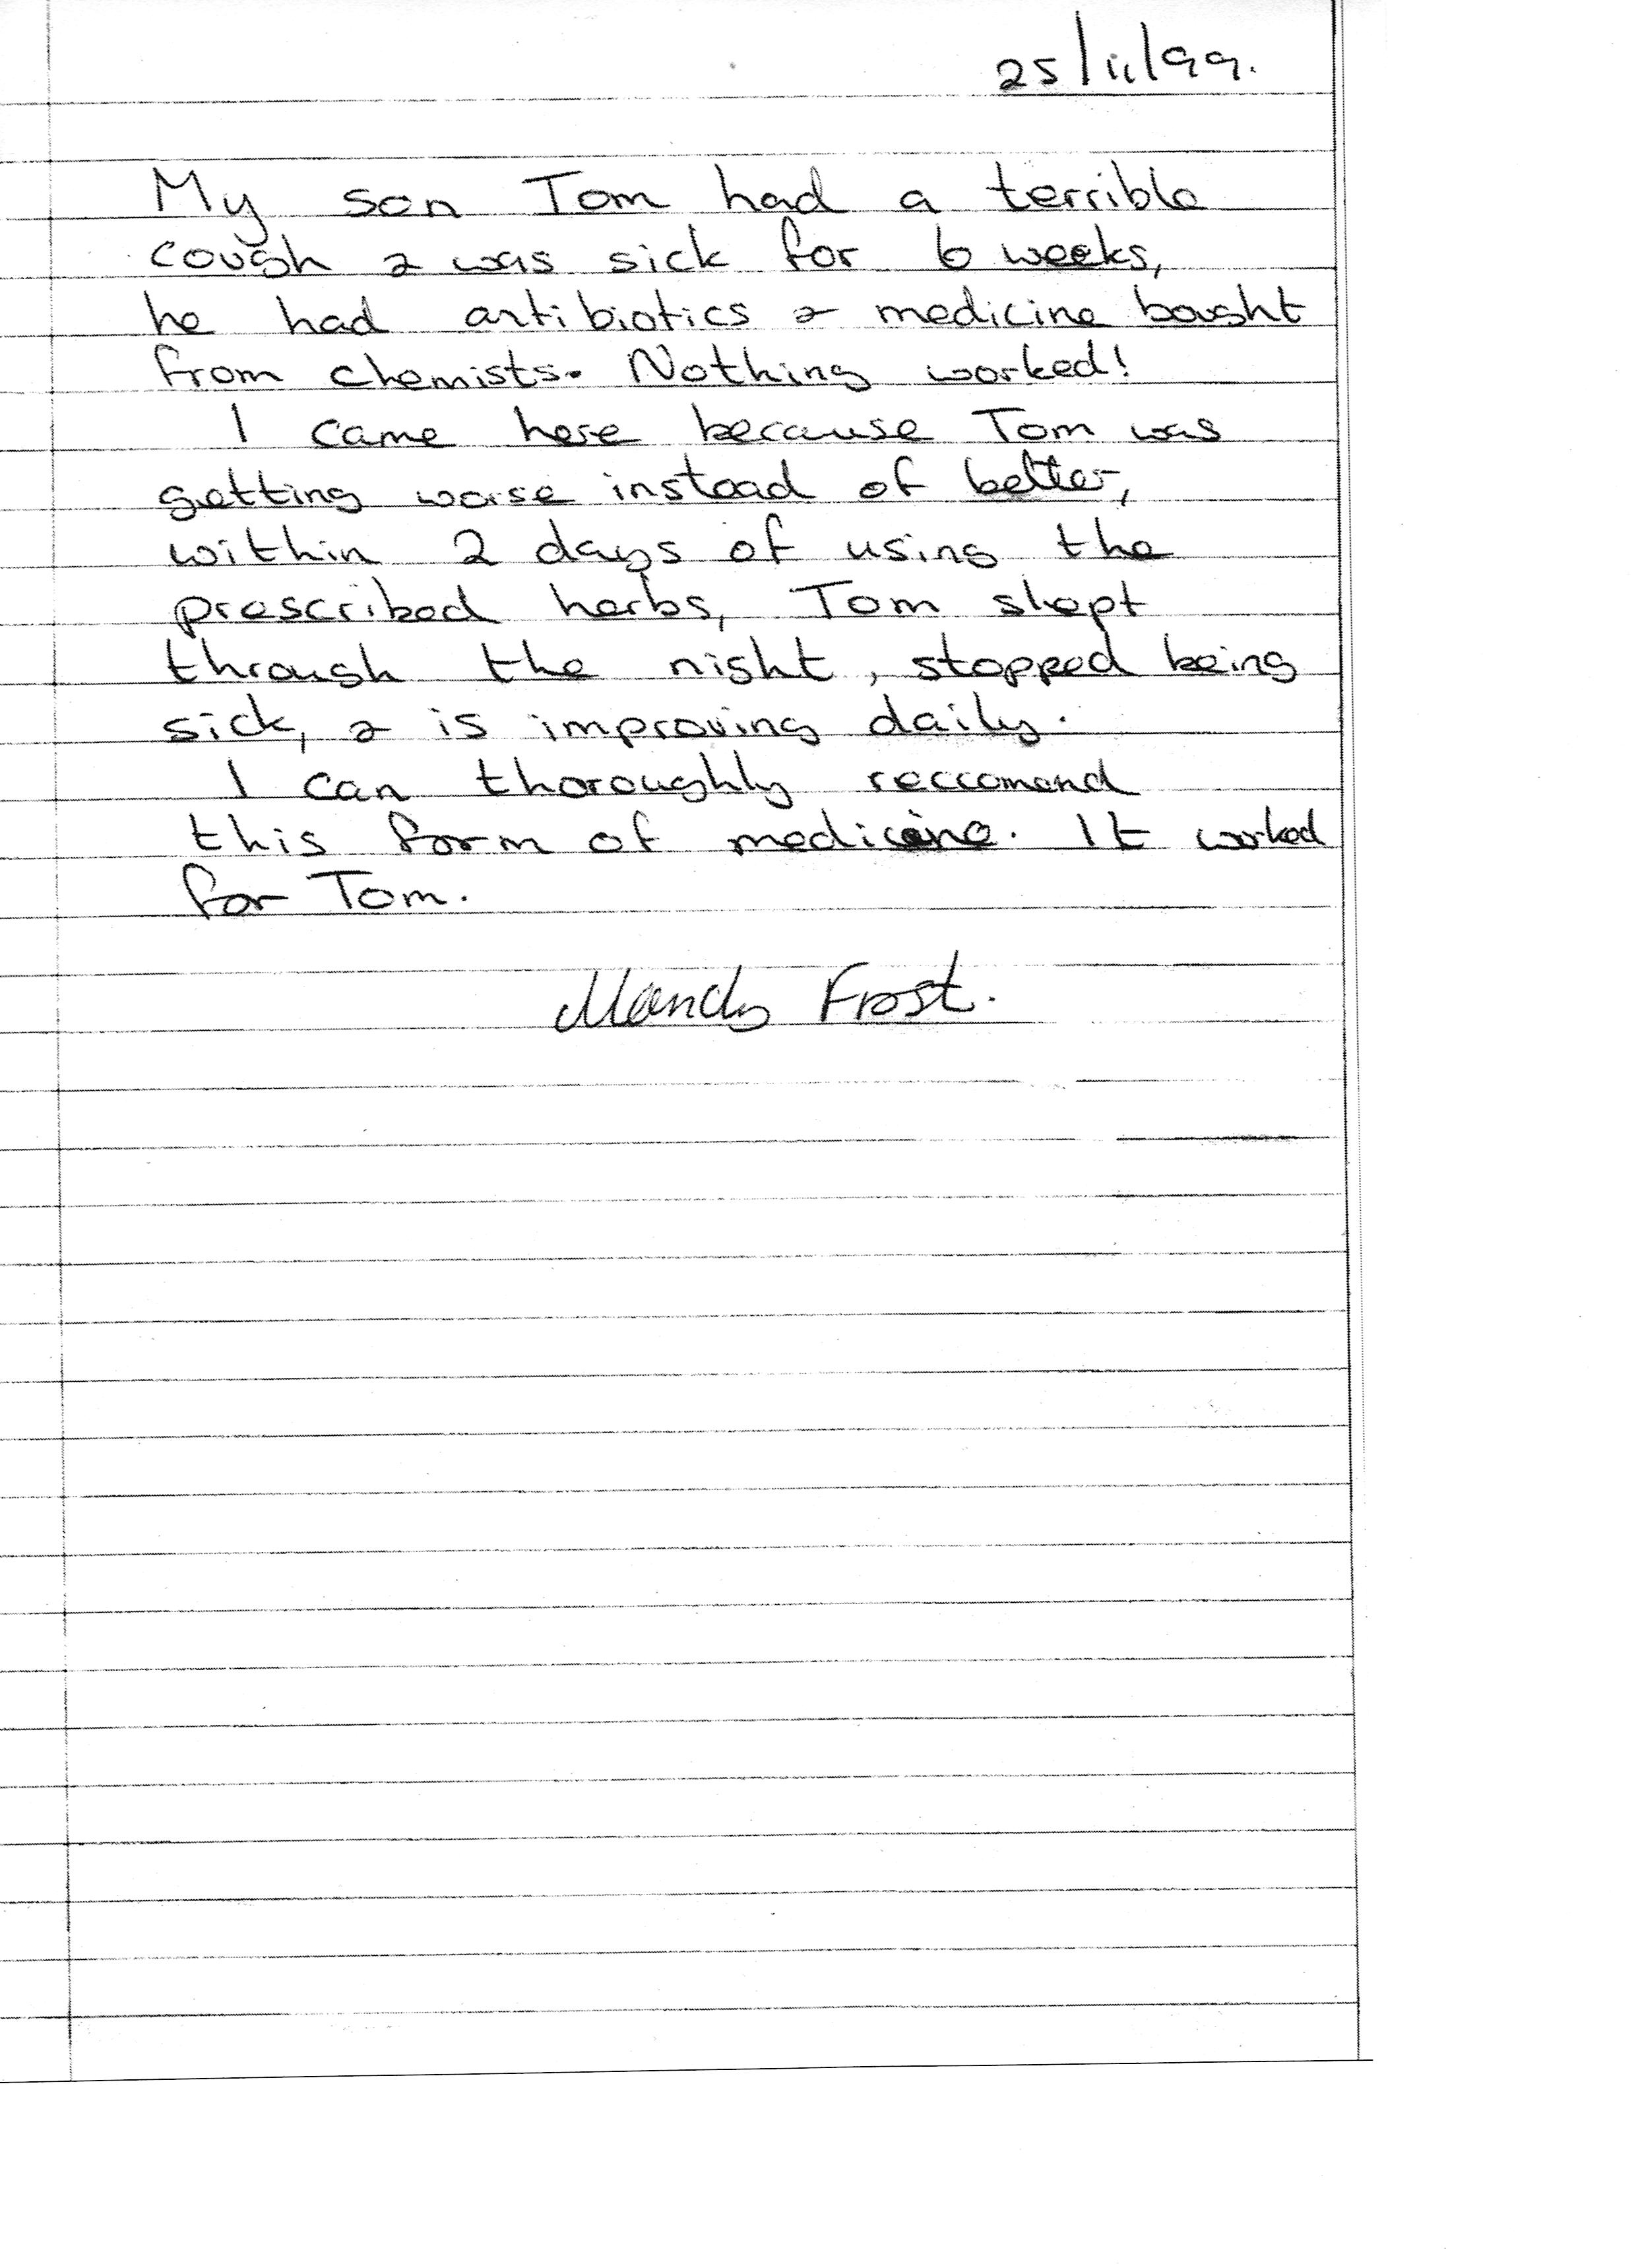 25/11/99.
My son Tom had a terrible
cough & was sick for 6 weeks,
he had antibiotics & medicine bought
from chemists. Nothing worked!
I came here because Tom was
getting worse instead of better,
within 2 days of using the
prescribed herbs, Tom slept
through the night, stopped being
sick, & is improving daily.
I can thoroughly reccomend
this form of medicine. It worked
for Tom.
Mandy Frost.